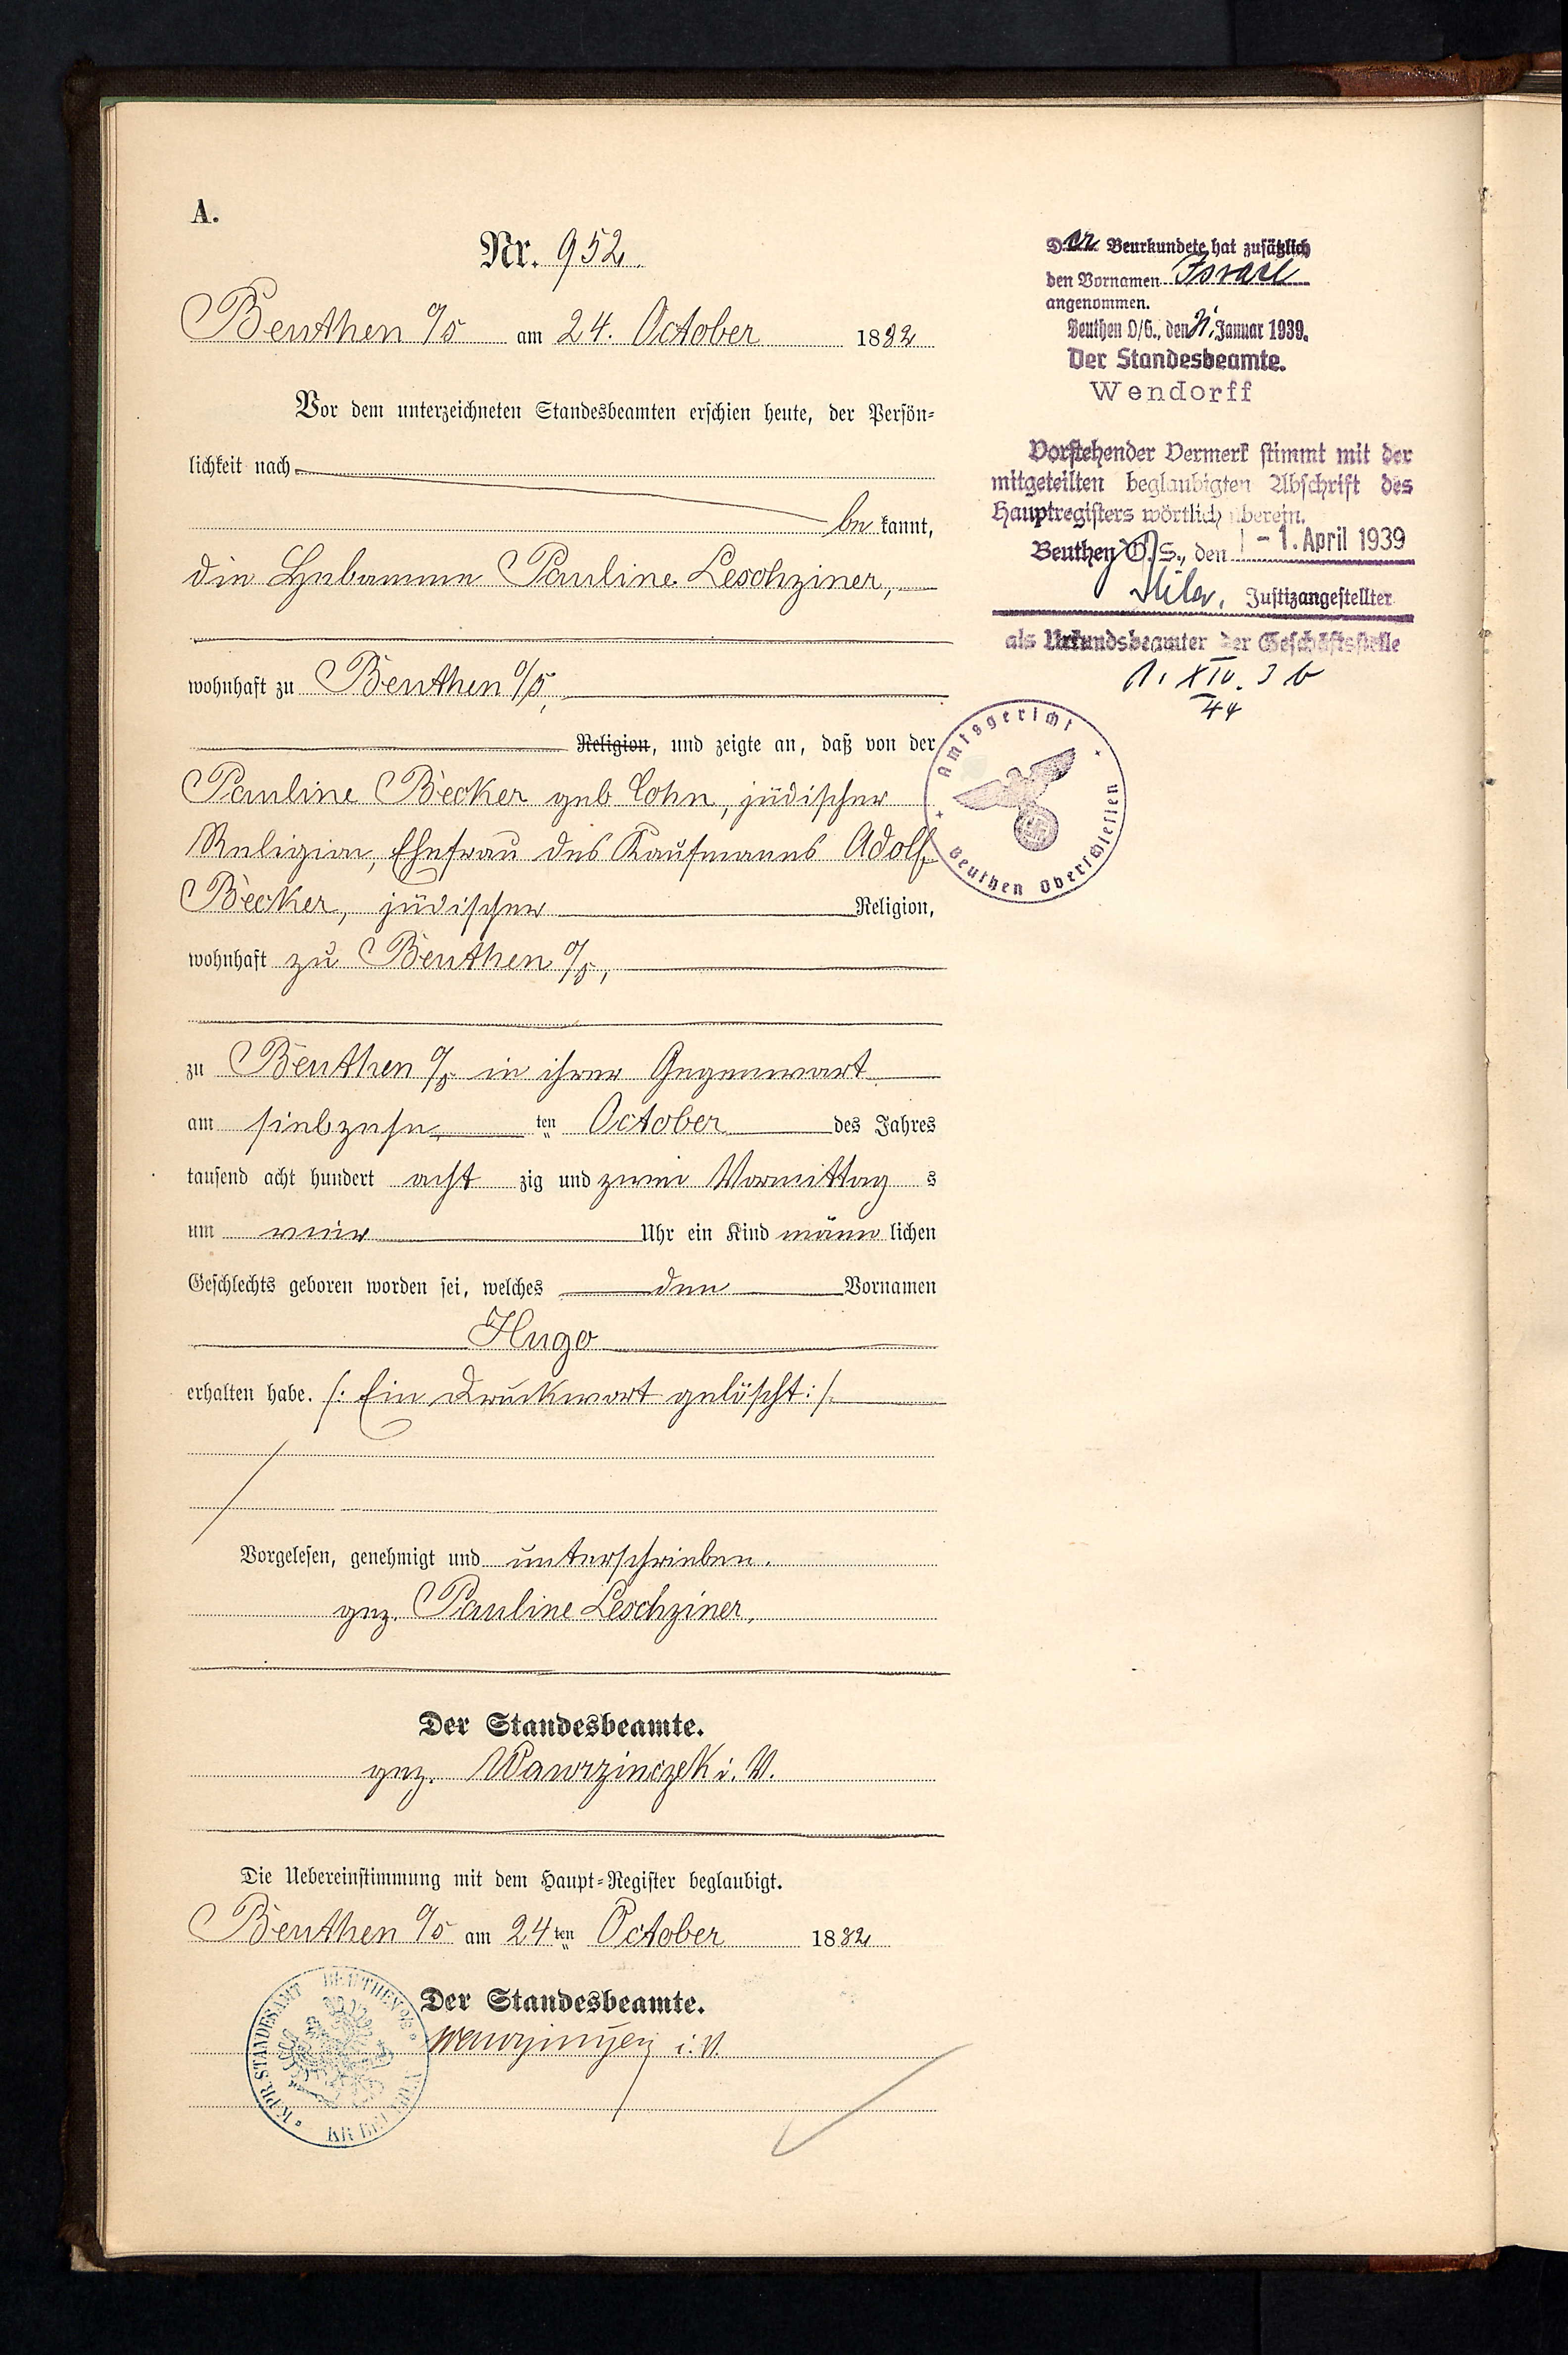 A.
Nr. 952.
Beuthen O/S am 24. October 1882
Vor dem unterzeichneten Standesbeamten erschien heute, der Persön=
lichkeit nach
be kannt,
die Hebamme Pauline Leschziner,
wohnhaft zu Beuthen O/S,
Religion, und zeigte an, daß von der
Pauline Becker geb Cohn, jüdischer
Religion, Ehefrau des Kaufmanns Adolf
Becker, jüdischer Religion,
wohnhaft zu Beuthen O/S,
zu Beuthen O/S in ihrer Gegenwart
am siebzehn ten October des Jahres
tausend acht hundert acht zig und zwei Vormittag s
um vier Uhr ein Kind männ lichen
Geschlechts geboren worden sei, welches den Vornamen
Hugo
erhalten habe. /: Ein Druckwort gelöscht :/
Vorgelesen, genehmigt und unterschrieben.
gez. Pauline Leschziner,
Der Standesbeamte.
gez. Wawrzinczek i. V.
Die Uebereinstimmung mit dem Haupt=Register beglaubigt.
Beuthen O/S am 24ten October 1882
Der Standesbeamte.
Wawrzinczek i. V.
K. PR. STANDESAMT BEUTHEN O/S
Der Beurkundete hat zusätzlich
den Vornamen Israel
angenommen.
Beuthen O/S., den Januar 1939.
Der Standesbeamte.
Wendorff
Vorstehender Vermerk stimmt mit der
mitgeteilten beglaubigten Abschrift des
Hauptregisters wörtlich überein.
Beuthen O.S., den - 1. April 1939
Justizangestellter
als Urkundsbeamter der Geschäftsstelle
1. XIV. 3 b
44
Amtsgericht
Beuthen Oberschlesien